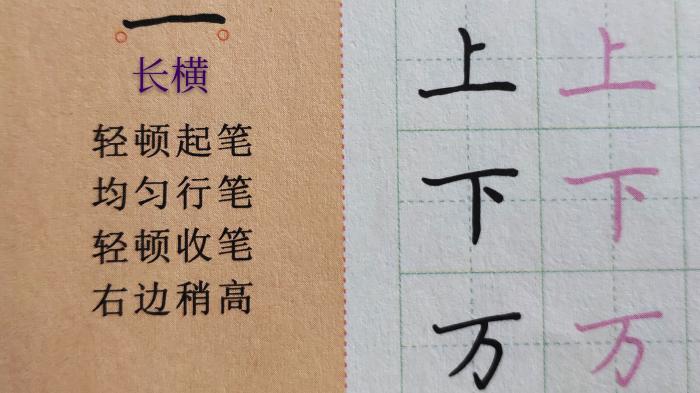 一
长横
轻顿起笔
均匀行笔
轻顿收笔
右边稍高
上 上
下 下
万 万